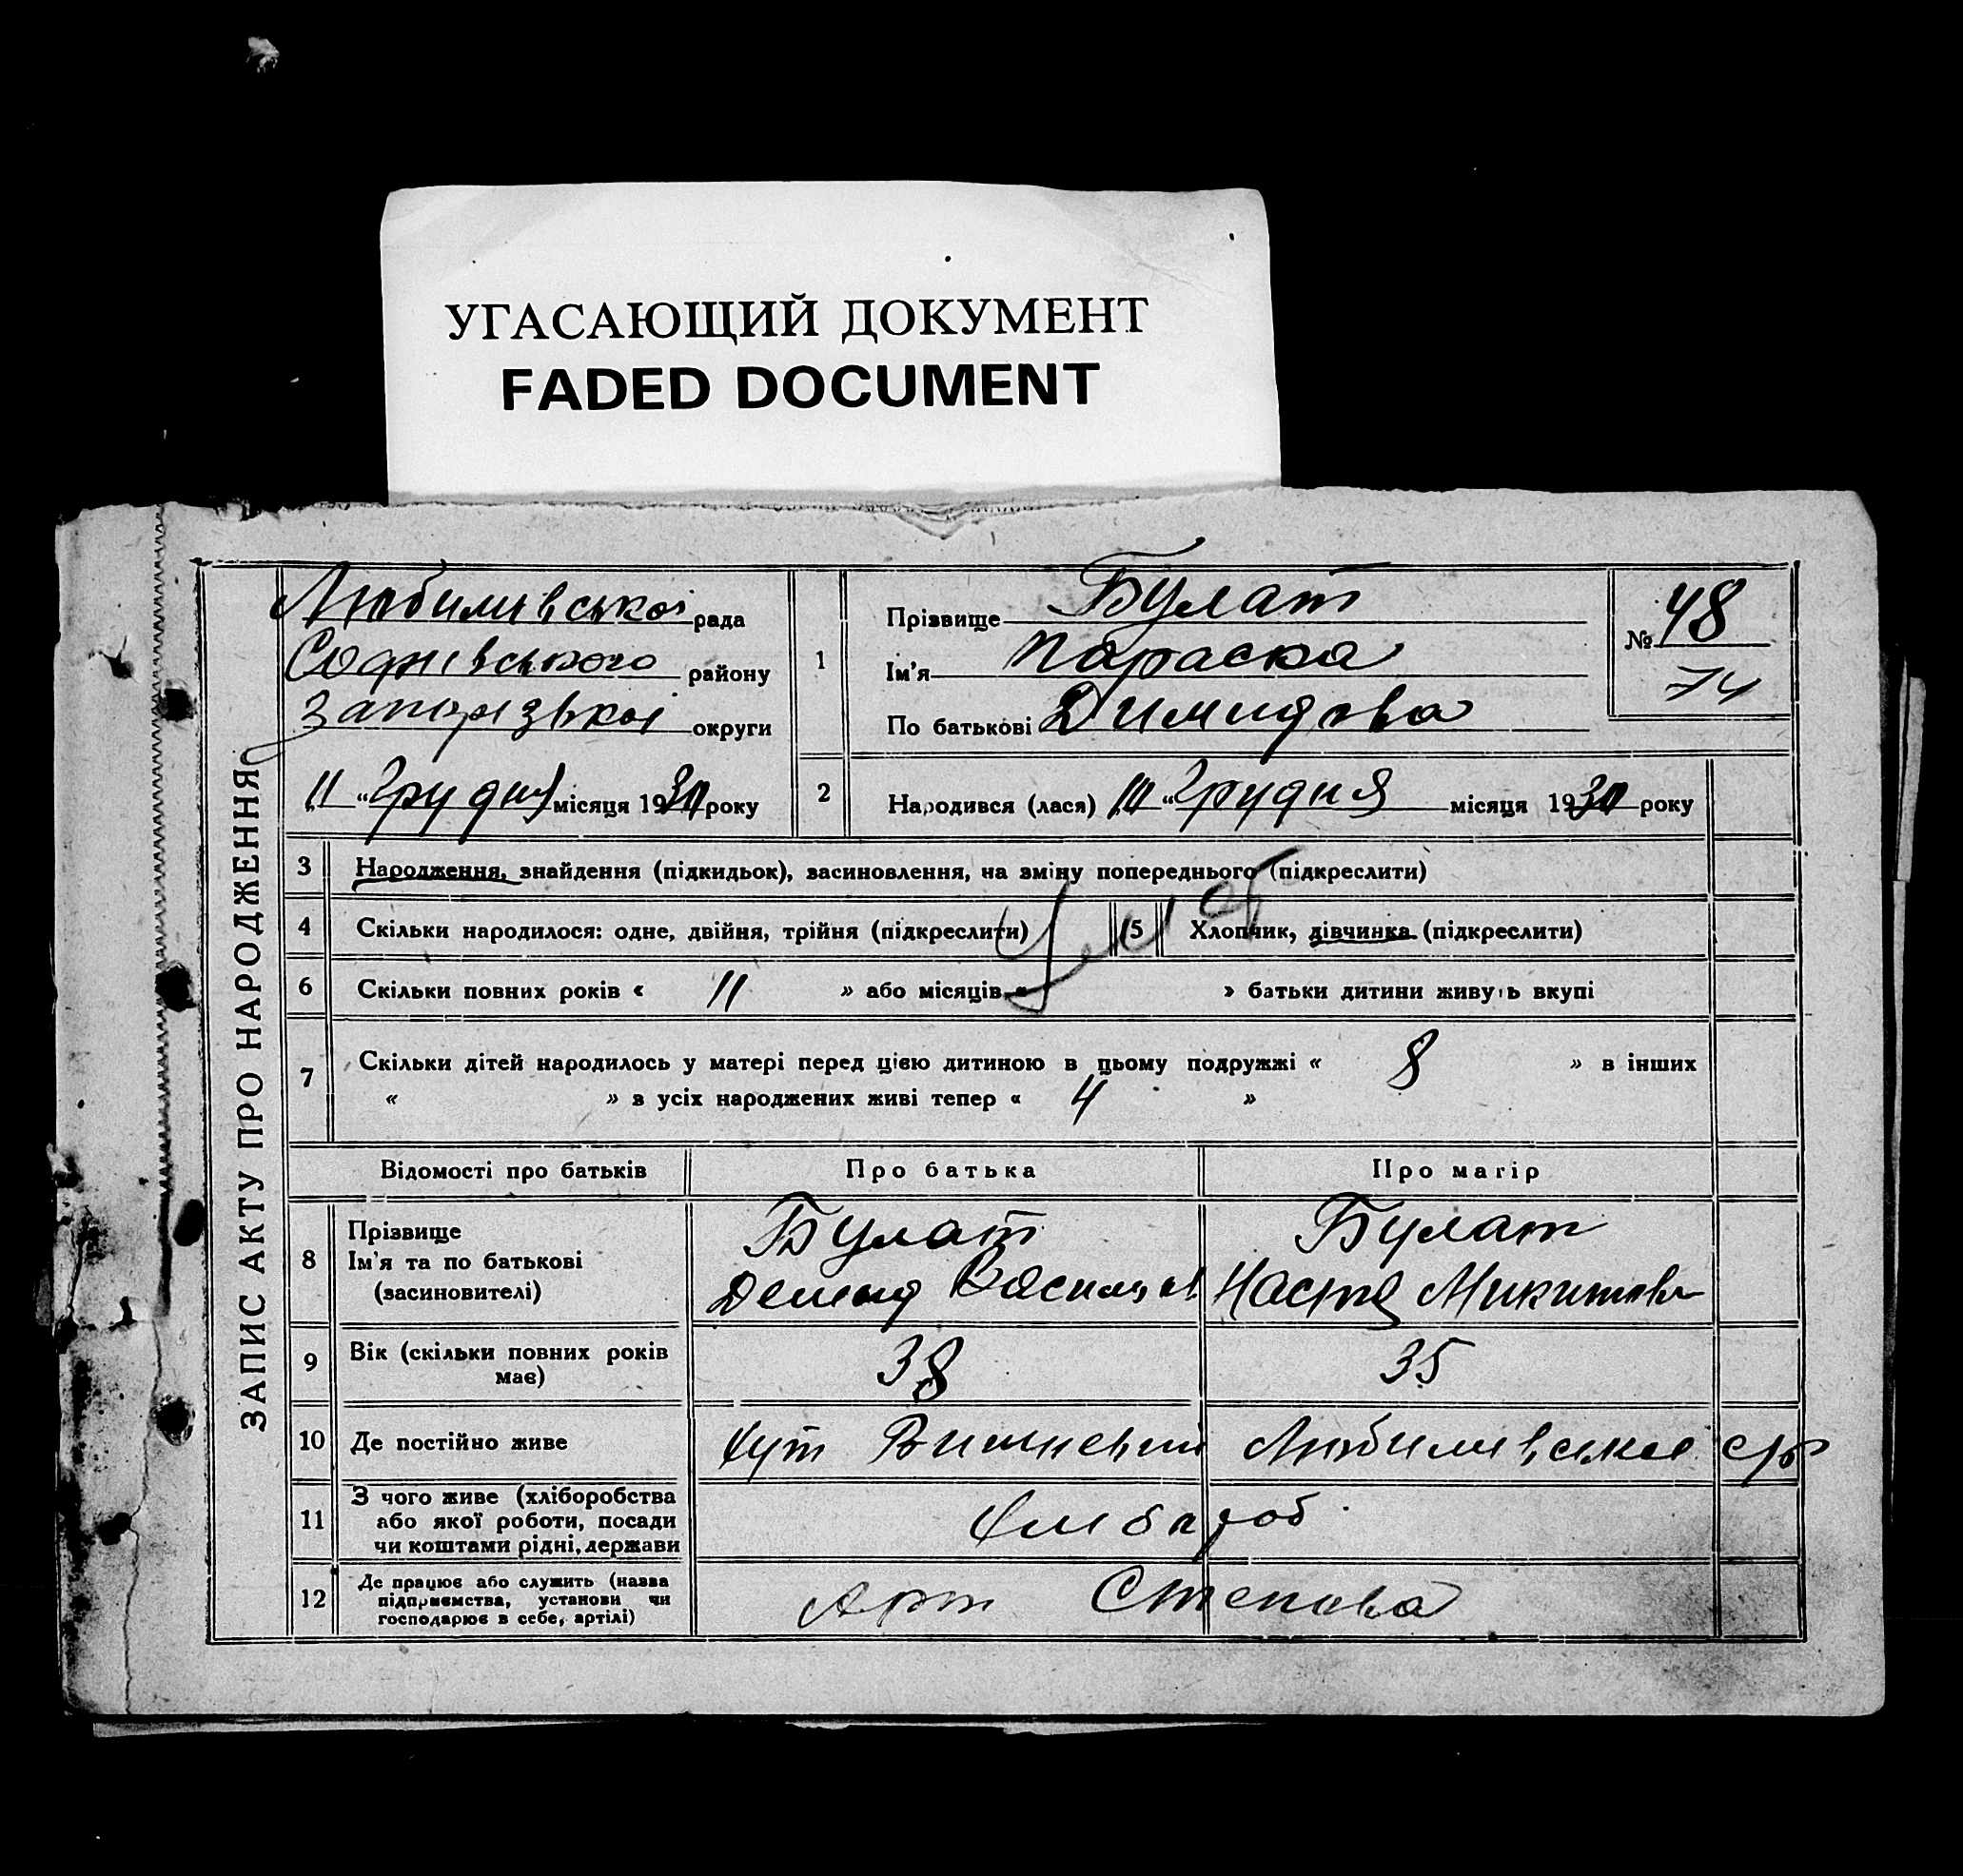 УГАСАЮЩИЙ ДОКУМЕНТ
FADED DOCUMENT
ЗАПИС АКТУ ПРО НАРОДЖЕННЯ
Любимивської рада
Софиівського району
Запорізької округи
11 „Грудня місяця 1930 року
1
Прізвище Булат
Ім'я Параска
По батькові Димидова
№ 48
74
2 Народився (лася) „Грудня місяця 1930 року
3 Народження, знайдення (підкидьок), засиновлення, на зміну попереднього (підкреслити)
4 Скільки народилося: одне, двійня, трійня (підкреслити) 5 Хлопчик, дівчинка (підкреслити)
6 Скільки повних років « 11 » або місяців « » батьки дитини живуть вкупі
7 Скільки дітей народилось у матері перед цією дитиною в цьому подружжі « 8 » в інших
« » в усіх народжених живі тепер « 4 »
Відомості про батьків Про батька Про матір
8 Прізвище Булат Булат
Ім'я та по батькові Демид Васильов Настя Микитовн
(засиновителі)
9 Вік (скільки повних років має) 38 35
10 Де постійно живе хут Вишневий Любимивської с/р
11 З чого живе (хліборобства
або якої роботи, посади
чи коштами рідні, держави хлибороб
12 Де працює або служить (назва
підприємства, установи чи
господарює в себе, артілі) Арт Степова